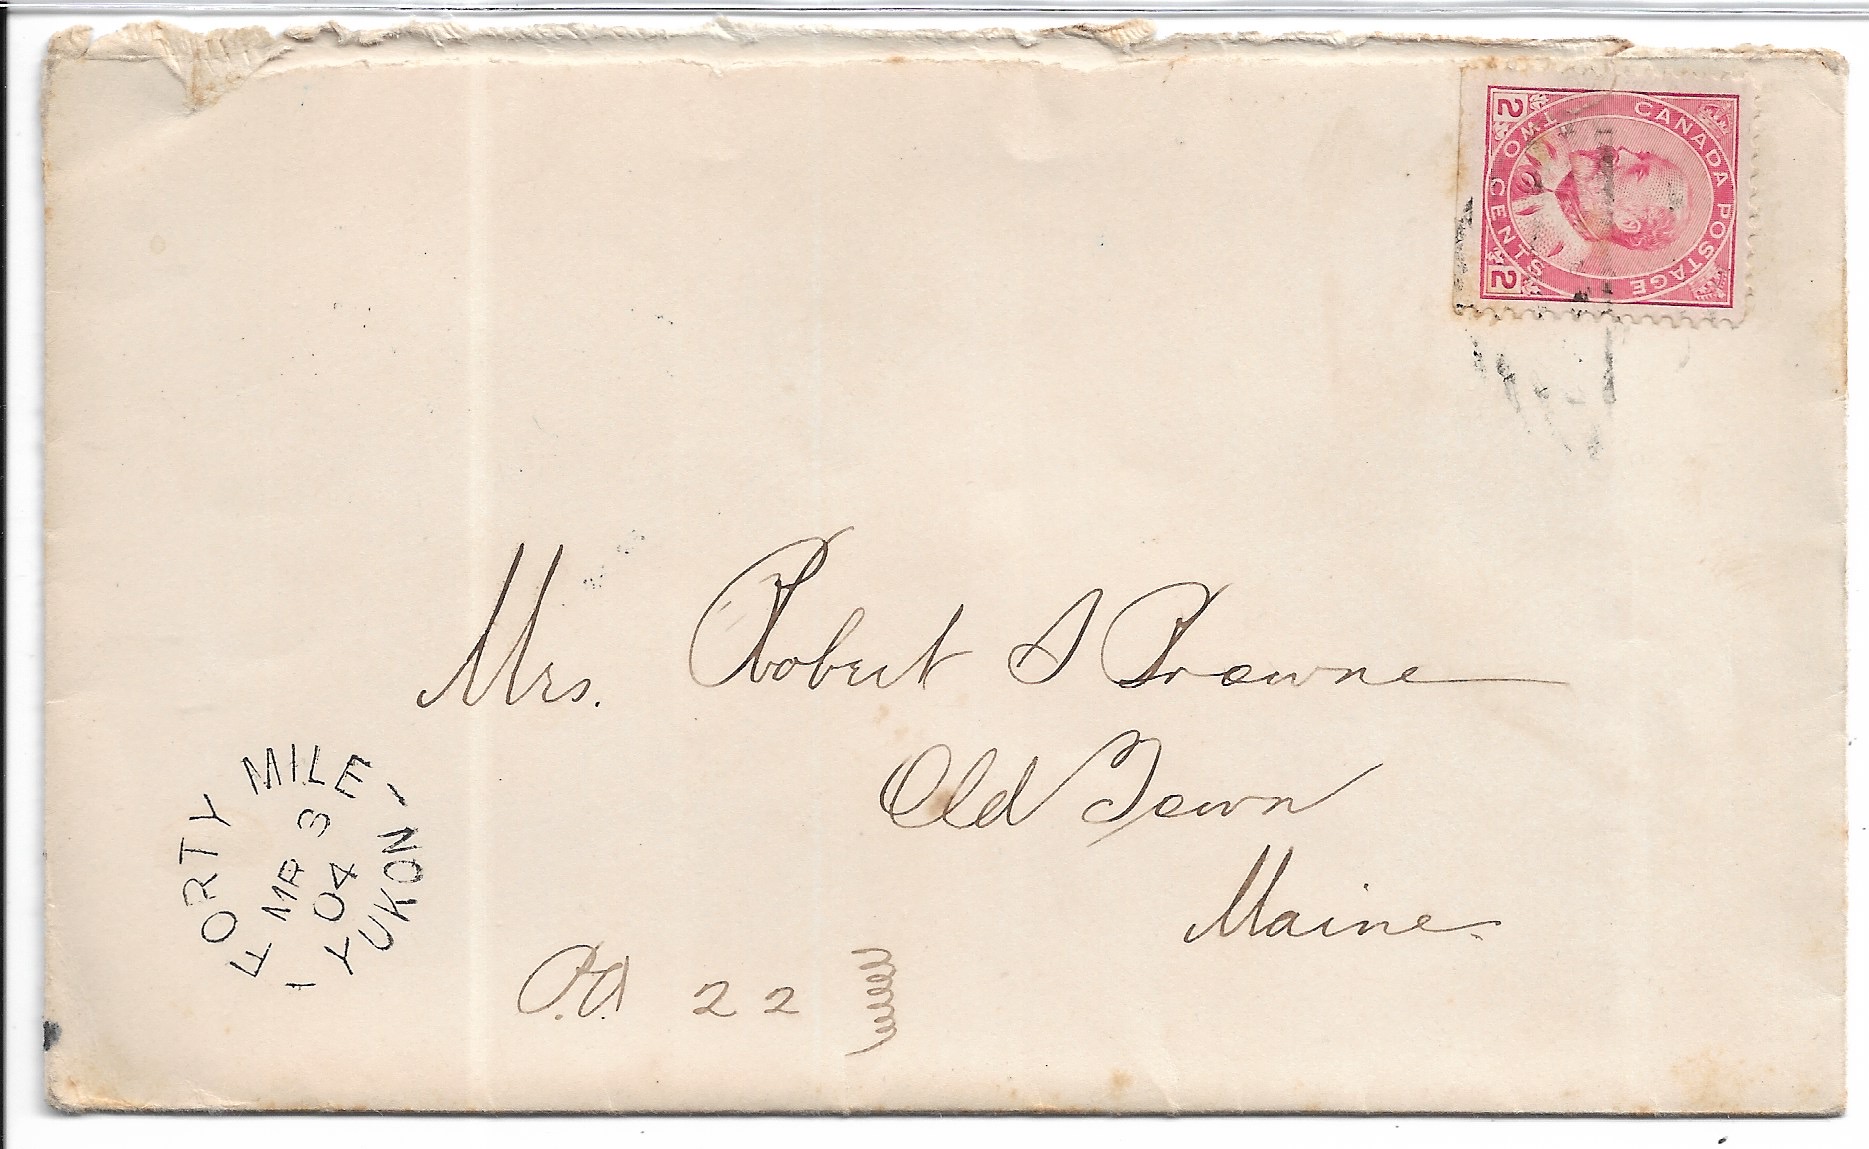 CANADA POSTAGE
TWO CENTS
2 2
Mrs. Robert S Browne
Old Town
Maine.
FORTY MILE
MR 3
04
YUKON
22